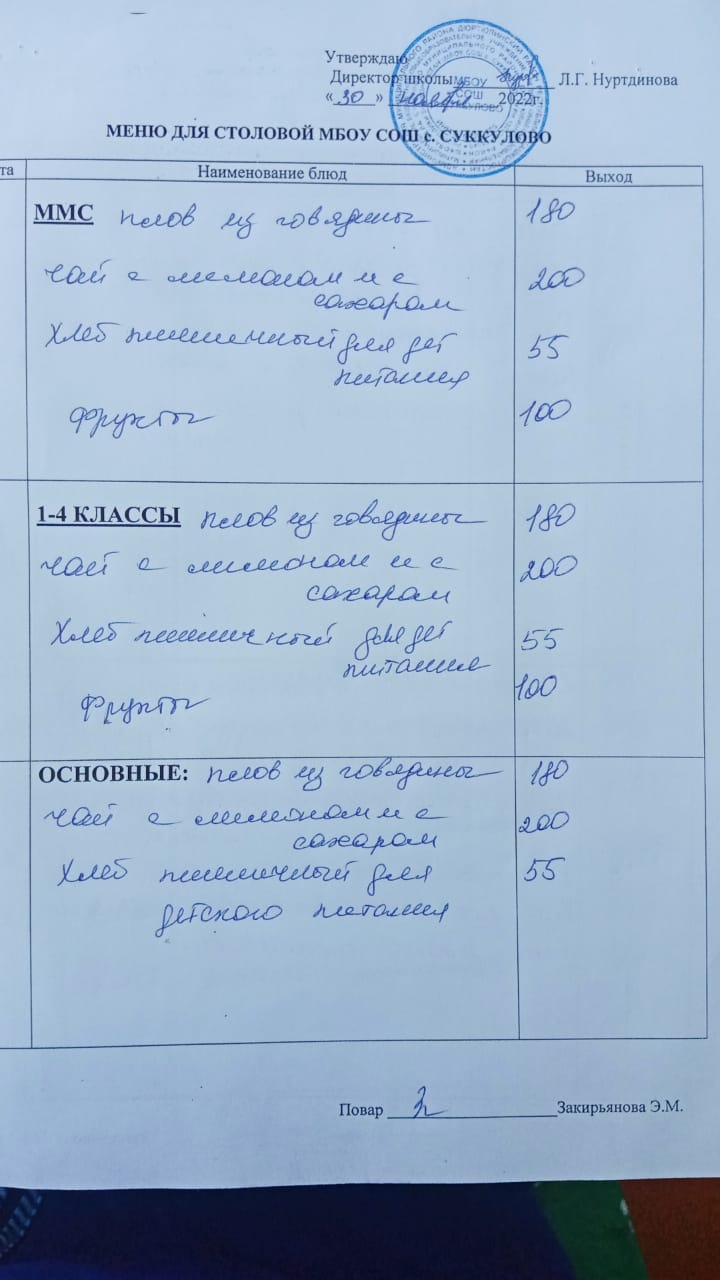 Утверждаю
Директор школы Л.Г. Нуртдинова
« 30 » ноября 2022г.
МБОУ
СОШ
МЕНЮ ДЛЯ СТОЛОВОЙ МБОУ СОШ с. СУККУЛОВО
та Наименование блюд Выход
ММС плов из говядины 180
чай с лимоном и с 200
сахаром
Хлеб пшеничный для дет 55
питания
Фрукты 100
1-4 КЛАССЫ плов из говядины 180
чай с лимоном и с 200
сахаром
Хлеб пшеничный для дет 55
питания
Фрукты 100
ОСНОВНЫЕ: плов из говядины 180
чай с лимоном и с 200
сахаром
Хлеб пшеничный для 55
детского питания
Повар Закирьянова Э.М.